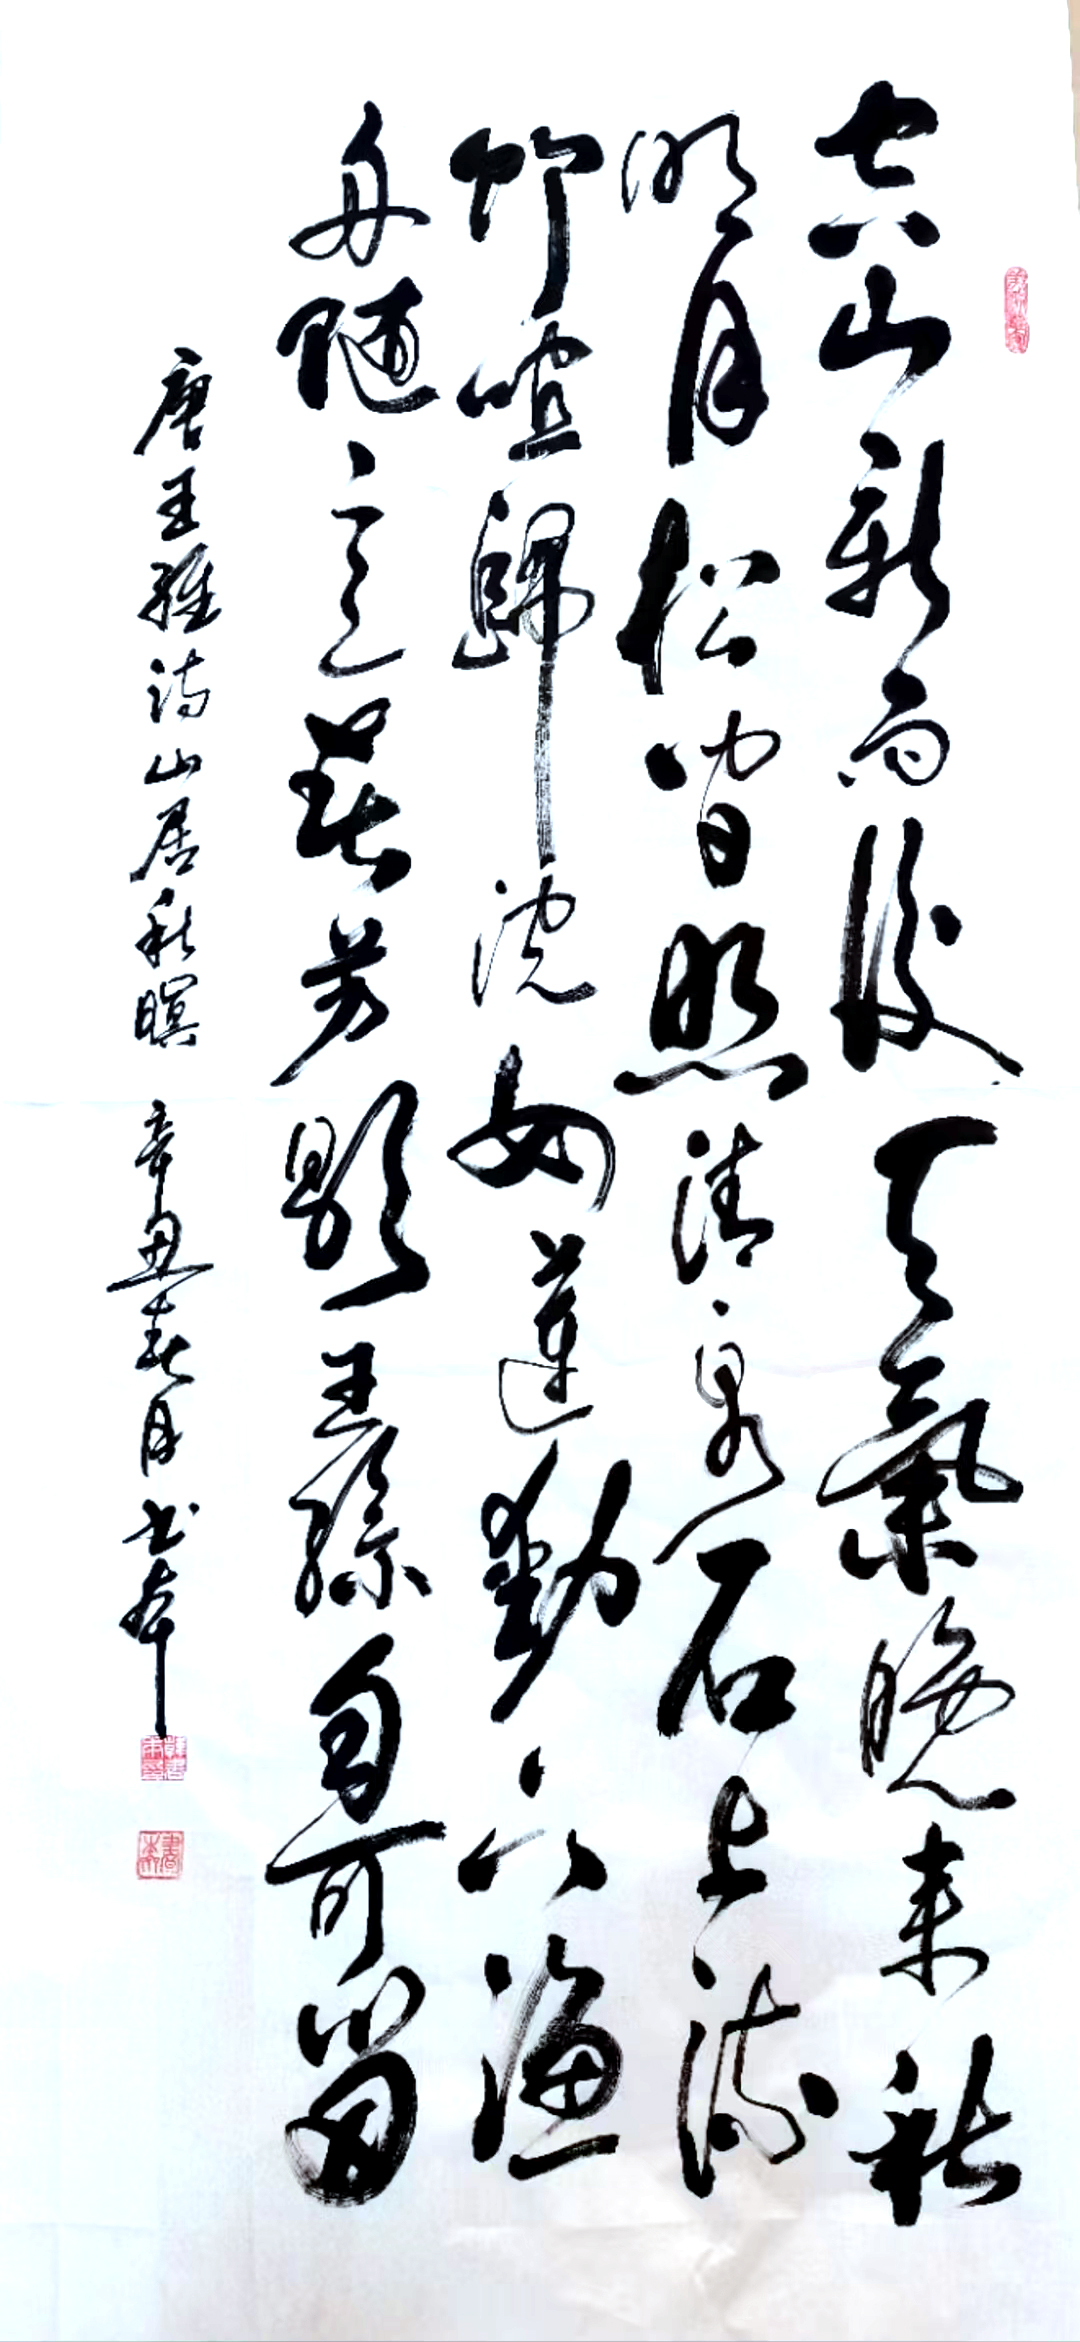 空山新雨後天氣晚来秋
明月松間照清泉石上流
竹喧歸浣女蓮動下漁
舟隨意春芳歇王孫自可留
唐王維詩山居秋暝 辛丑春月书本